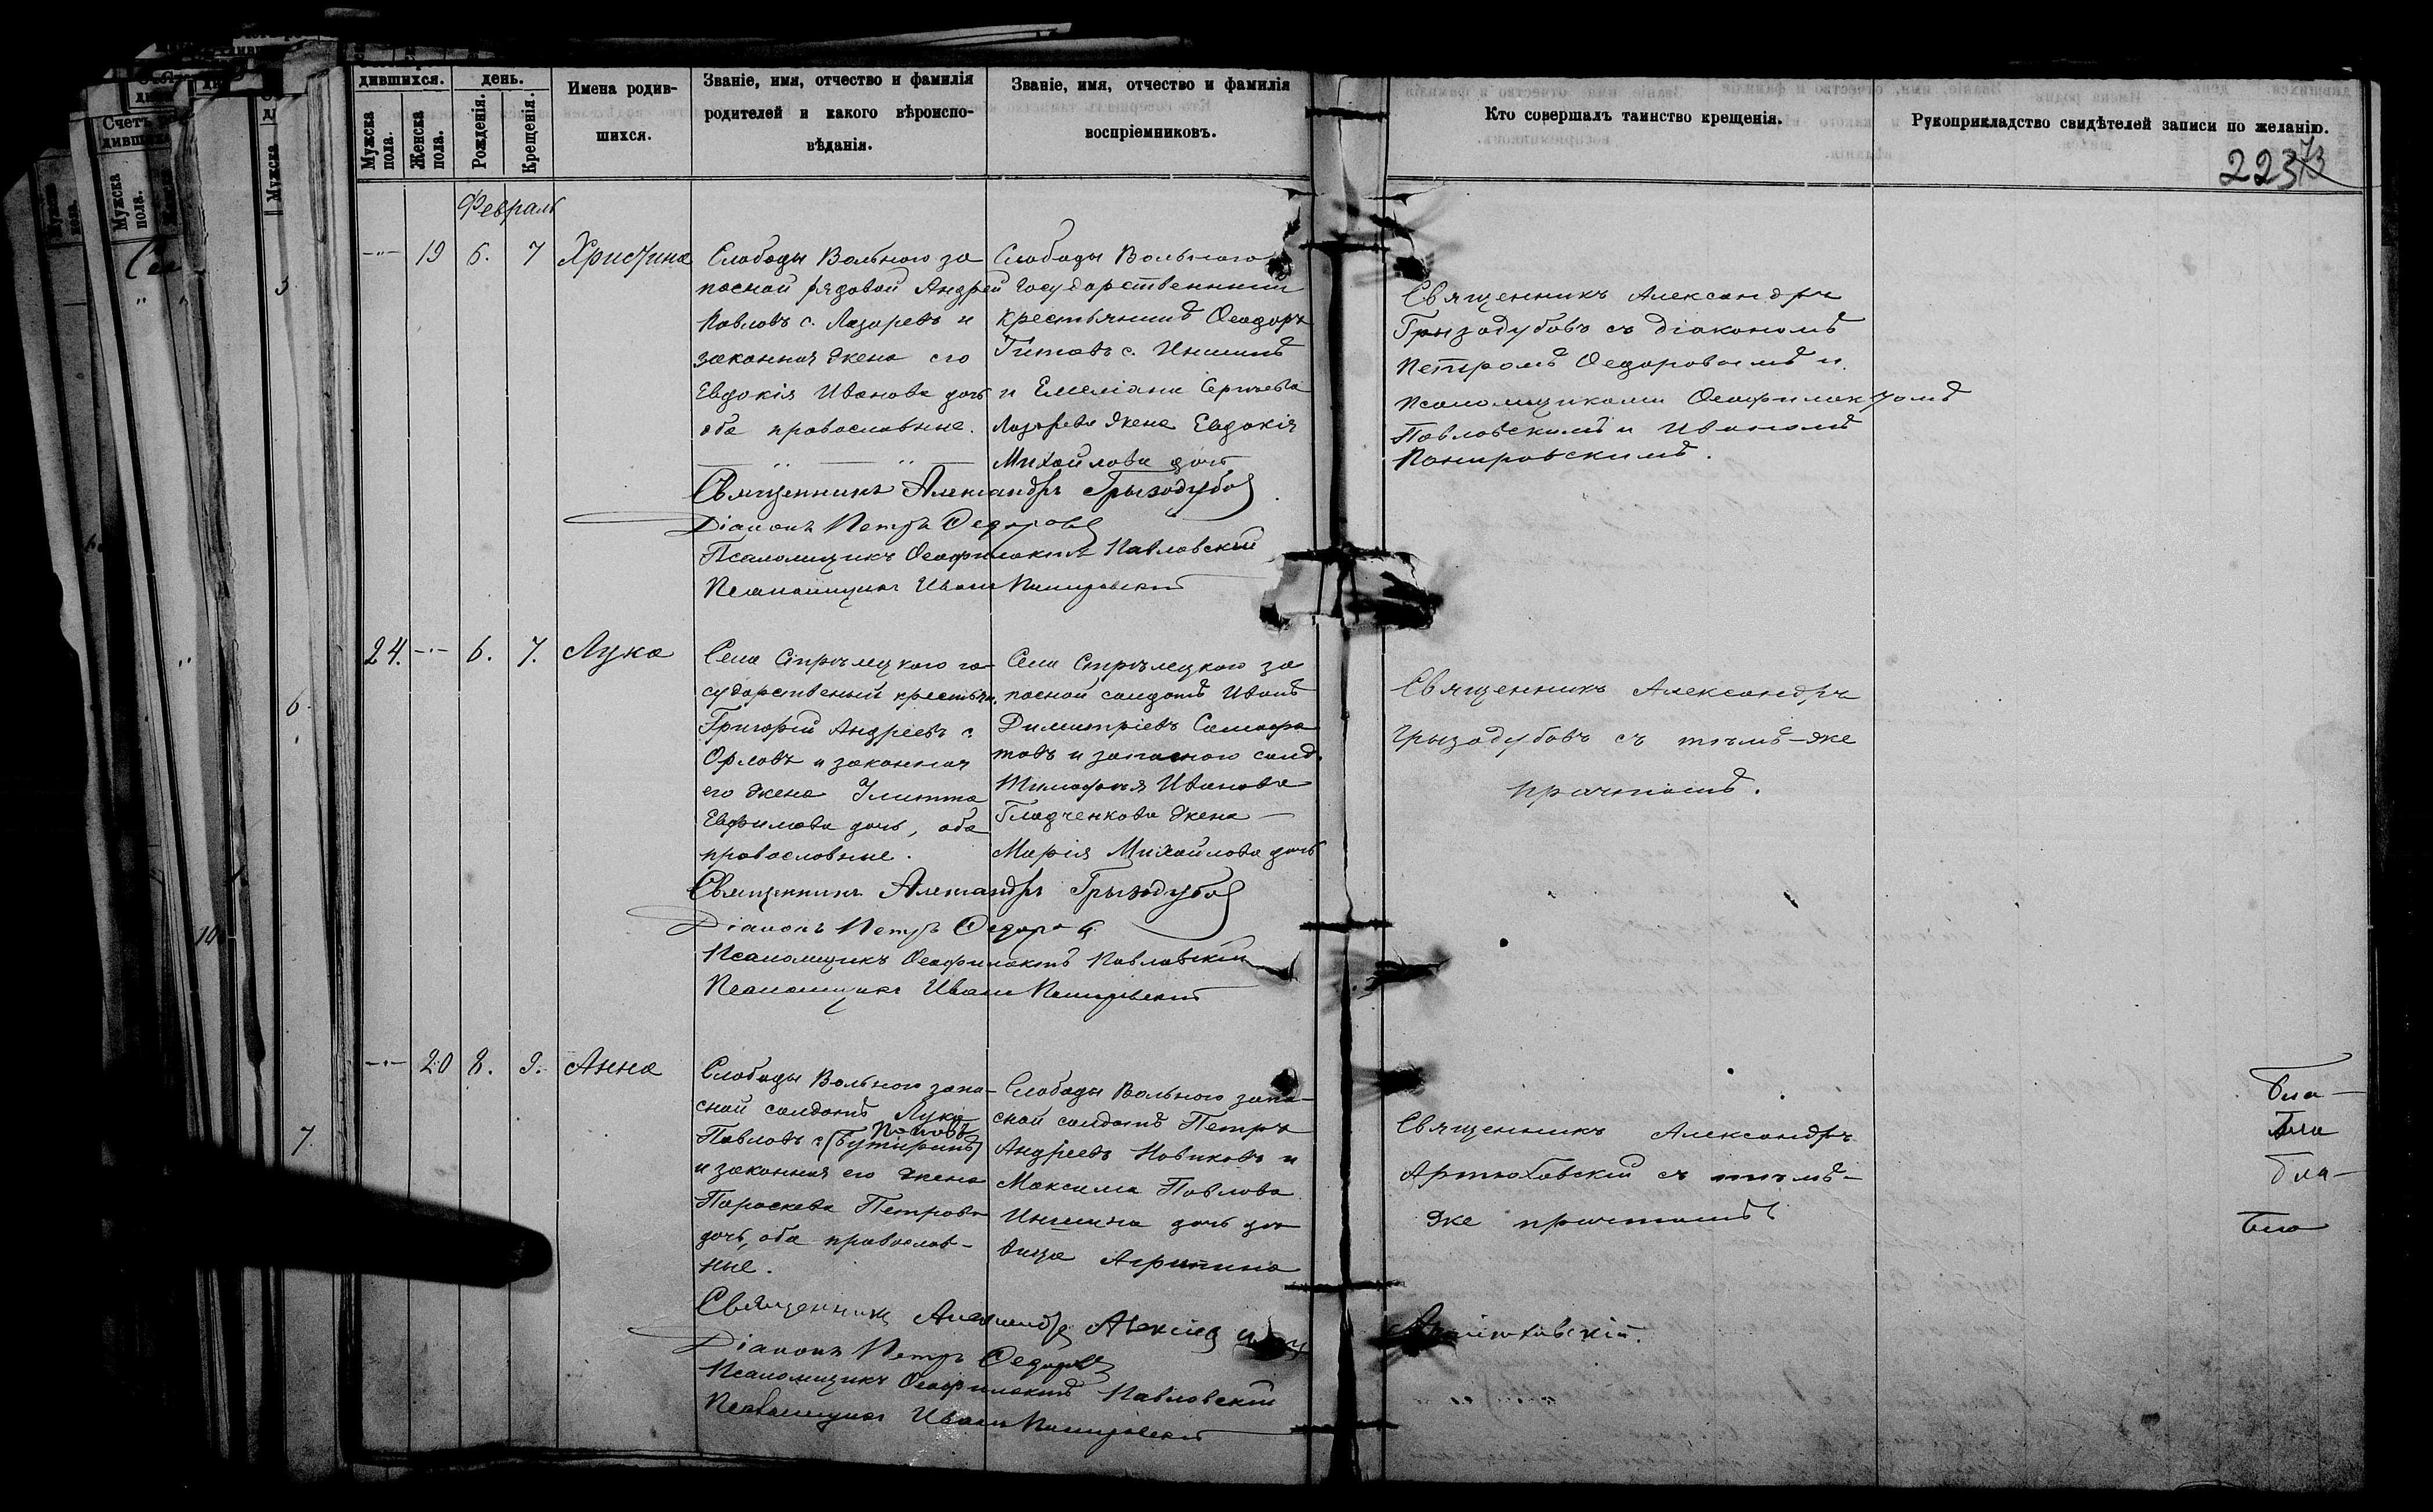 дившихся.
день.
Мужска пола.
Женска пола.
Рожденія.
Крещенія.
Имена родив-
шихся.
Званіе, имя, отчество и фамилія
родителей и какого вѣроиспо-
вѣданія.
Званіе, имя, отчество и фамилія
воспріемниковъ.
Кто совершалъ таинство крещенія.
Рукоприкладство свидѣтелей записи по желанію.
223
Февраль
19 6. 7 Христина
Слободы Вольного за
пасной рядовой Андрей
Павловъ с. Лазаревъ и
законная жена его
Евдокія Иванова дочь
оба православные.
Слободы Вольного
государственный
крестьянинъ Ѳеодоръ
Титовъ с. Иншинъ
и Емеліана Сергѣева
Лазарева жена Евдокія
Михайлова дочь
Священникъ Александръ
Грызодубовъ съ діакономъ
Петромъ Ѳедоровымъ и
псаломщиками Ѳеофилактомъ
Павловскимъ и Иваномъ
Священникъ Александръ Грызодубов
Діаконъ Петръ Ѳедоровъ
Псаломщикъ Ѳеофилактъ Павловскій
Псаломщикъ Иванъ
24. 6. 7. Лука
Села Стрѣлецкого го-
сударственый крестьян.
Григорій Андреевъ с.
Орловъ и законная
его жена Улитта
Евфимова дочь, оба
православные.
Села Стрѣлецкого за
пасной солдатъ Иванъ
Димитріевъ
и запасного солд.
Тимофея Иванова
Гладченкова жена —
Марія Михайлова дочь
Священникъ Александръ
Грызодубовъ съ тѣмъ-же
причтомъ.
Священникъ Александръ Грызодубов
Діаконъ Петръ Ѳедоров
Псаломщикъ Ѳеофилактъ Павловскій
Псаломщикъ Иванъ
20 8. 9. Анна
Слободы Вольного запа-
сной солдатъ Лука
Павловъ с.
и законная его жена
Параскева Петрова
дочь, оба православ-
ные.
Слободы Вольного запа-
сной солдатъ Петръ
Андреевъ Новиковъ и
Максима Павлова
Иншина дочь дѣ
вица Агрипина
Священникъ Александръ
Артюховскій съ тѣмъ-
же причтомъ
Священникъ Александръ Алексѣевъ
Артюховскій.
Діаконъ Петръ Ѳедоровъ
Псаломщикъ Ѳеофилактъ Павловскій
Псаломщикъ Иванъ